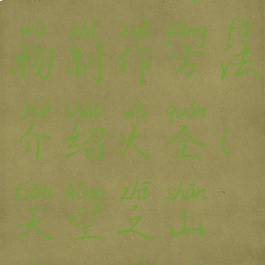 wù zhì zuò fāng fǎ
物制作方法
jiè shào dà quán
介绍大全(
tiān kōng zhī shān
天空之山